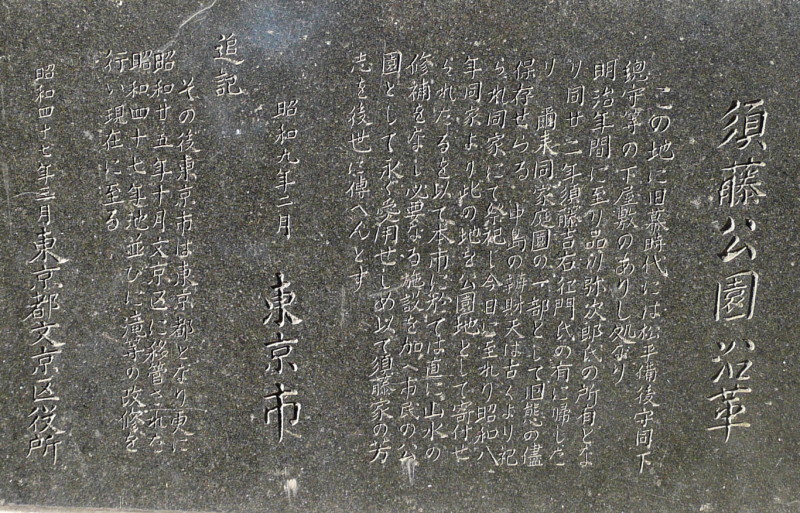 須藤公園沿革
この地に旧幕時代には松平備後守同下
總守等の下屋敷のありし処なり
明治年間に至り品川弥次郎氏の所有とな
り同廿二年須藤吉右衛門氏の有に帰した
り 爾来同家庭園の一部として旧態の儘
保存せらる 中島の辨財天は古くより祀
られ同家にて祭祀し今日に至れり昭和八
年同家より此の地を公園地として寄付せ
られたるを以て本市に於ては直に山水の
修補をなし必要なる施設を加へ市民の公
園として永く愛用せしめ以て須藤家の芳
志を後世に傳へんとす
昭和九年二月 東京市
追記
その後東京市は東京都となり更に
昭和廿五年十月文京区に移管された
昭和四十七年池並びに滝等の改修を
行い現在に至る
昭和四十七年三月東京都文京区役所